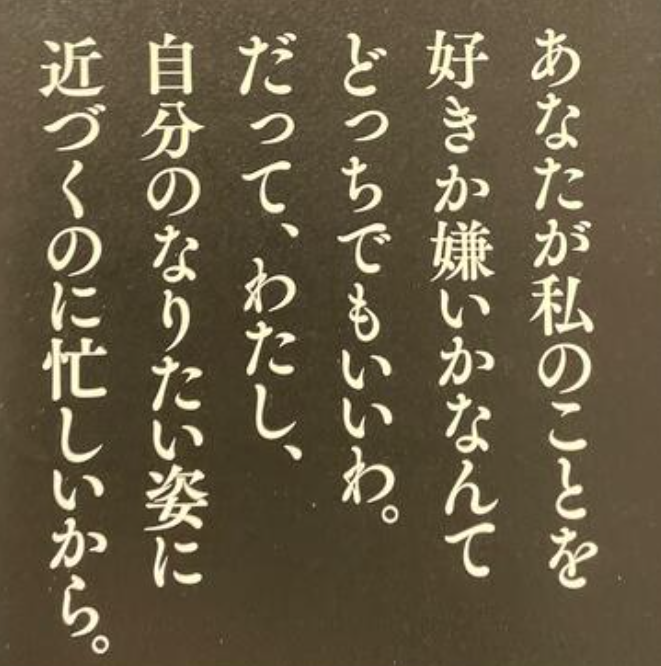 あなたが私のことを
好きか嫌いかなんて
どっちでもいいわ。
だって、わたし、
自分のなりたい姿に
近づくのに忙しいから。